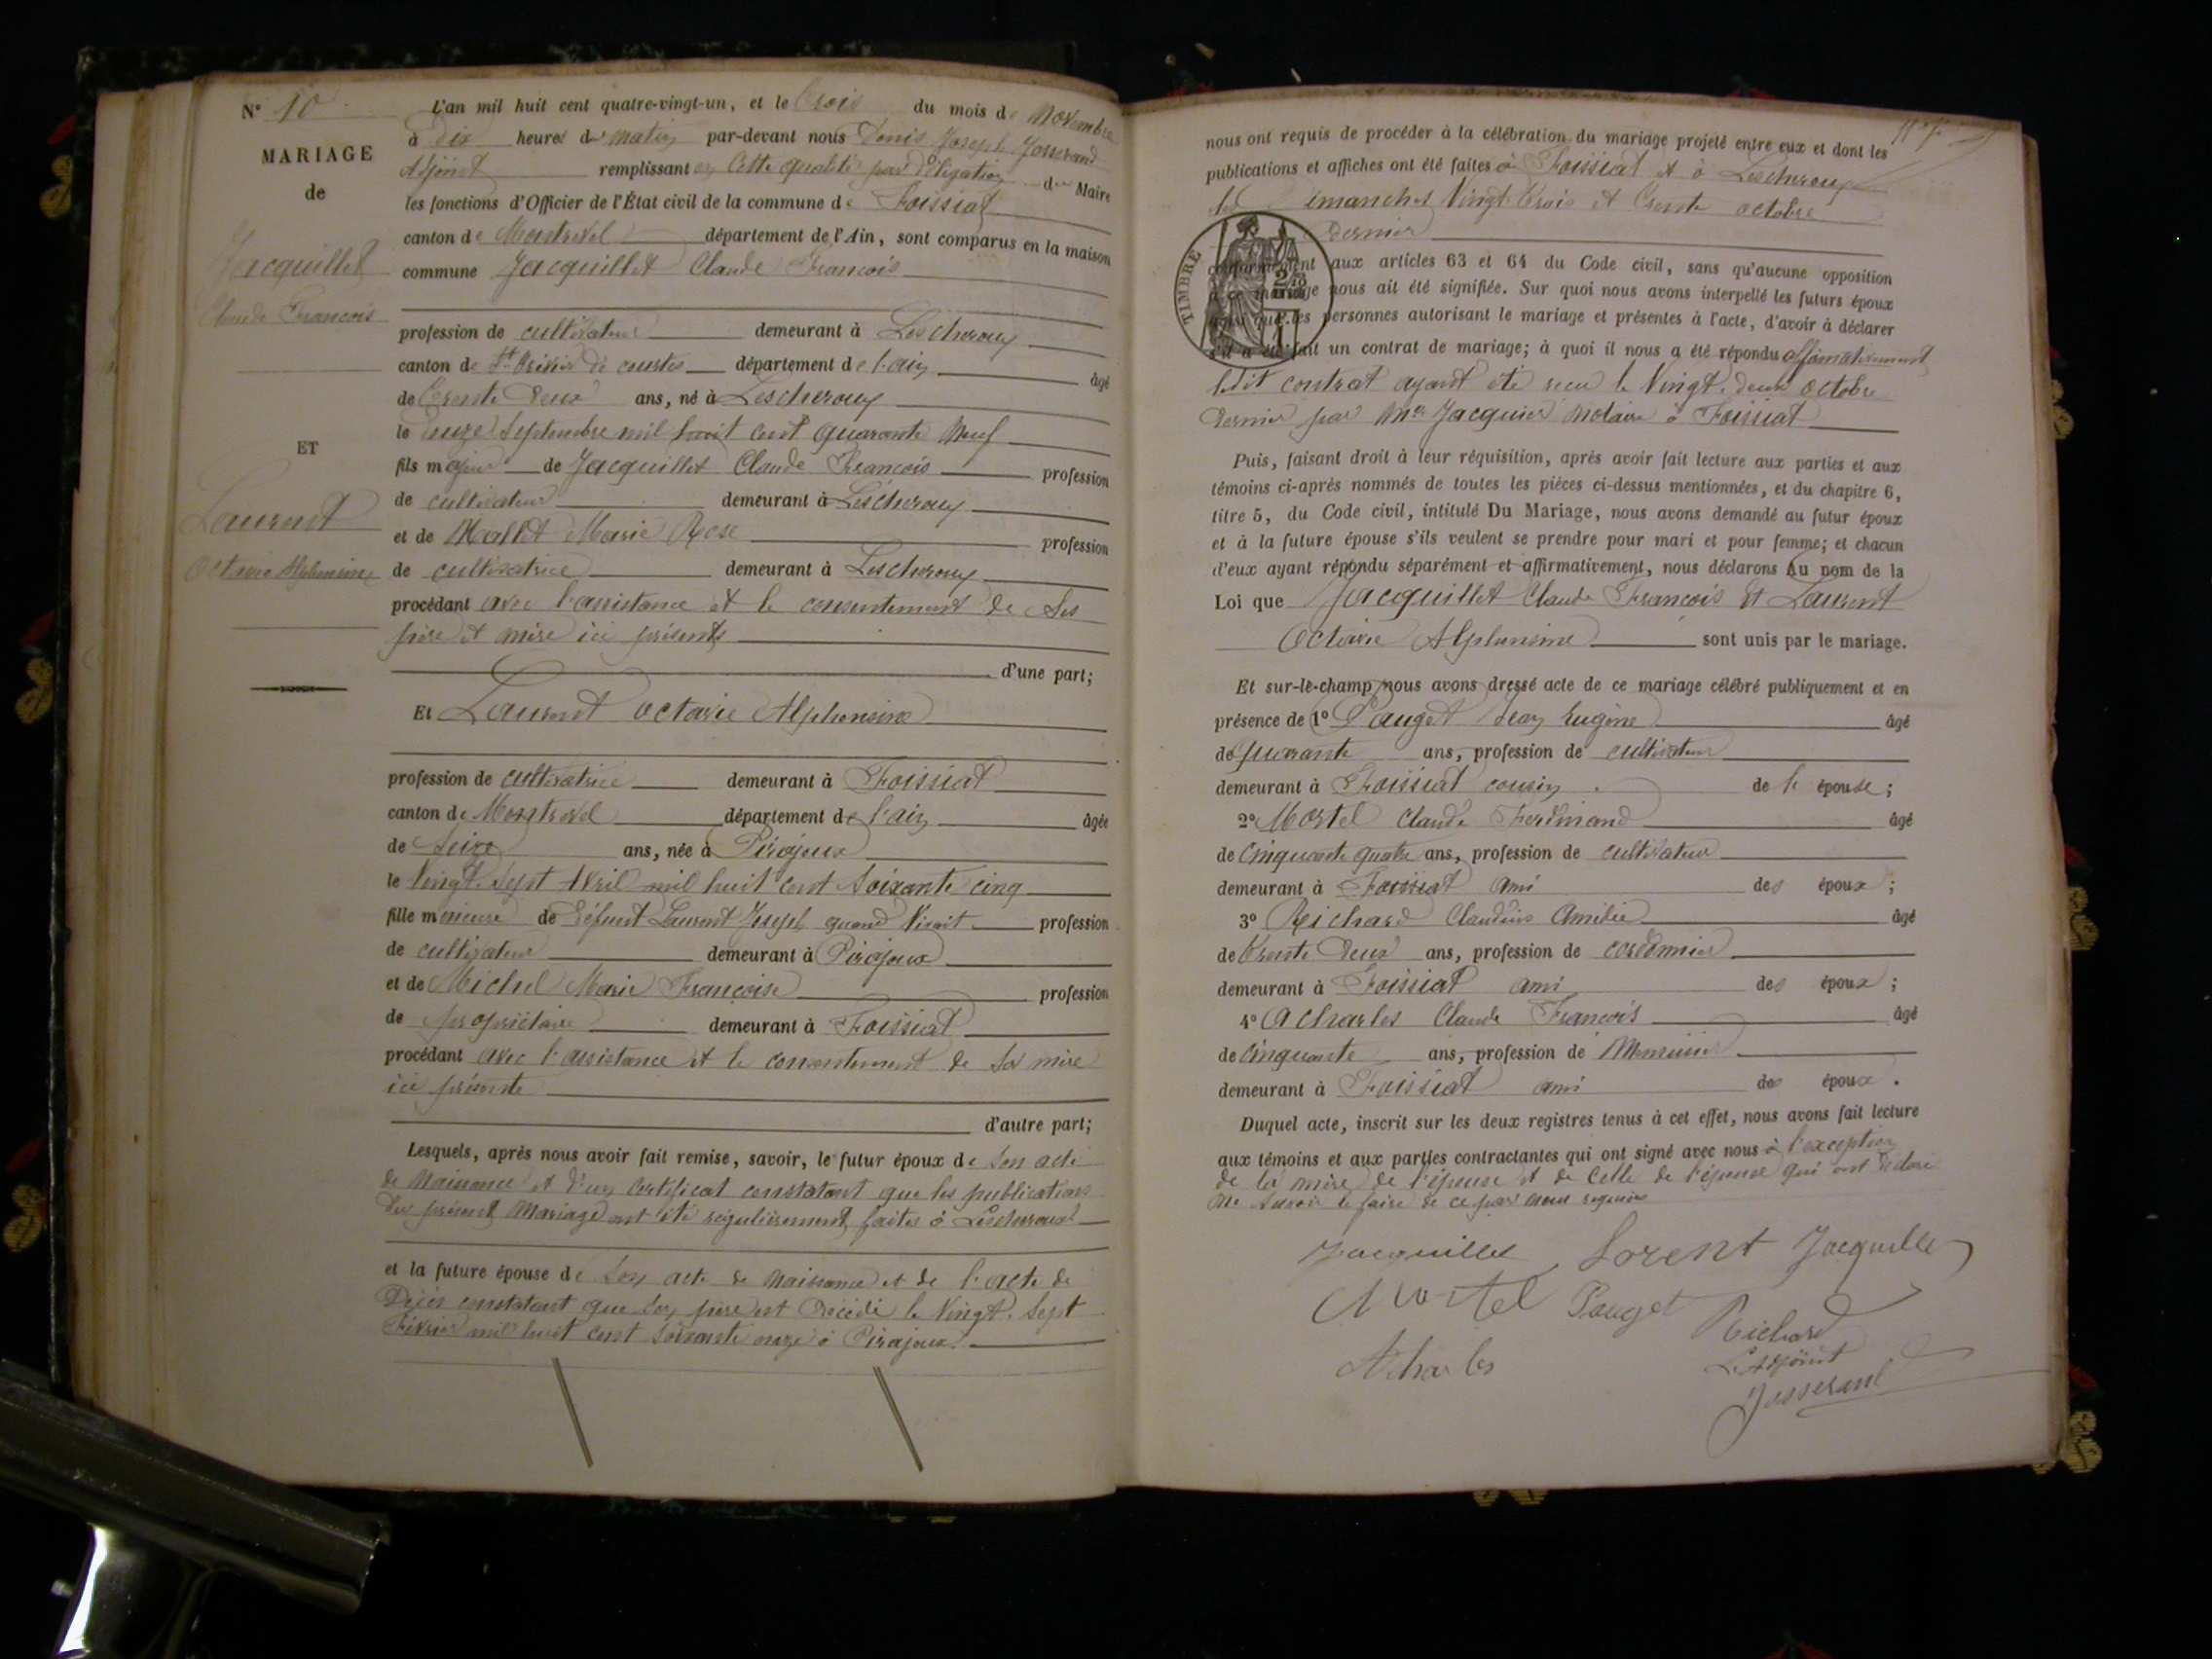 N° 10
MARIAGE
de
Jacquillet
Claude François
ET
Laurent
Octavie Alphonsine
L'an mil huit cent quatre-vingt-un, et le trois du mois de Novembre
à dix heures du matin par-devant nous Denis Joseph Josserand
Adjoint remplissant en cette qualité par délégation du Maire
les fonctions d'Officier de l'État civil de la commune de Foissiat
canton de Montrevel département de l'Ain, sont comparus en la maison
commune Jacquillet Claude François
profession de cultivateur demeurant à Lescheroux
canton de St Trivier de courtes département de l'ain âgé
de trente deux ans, né à Lescheroux
le onze Septembre mil huit cent quarante neuf
fils majeur de Jacquillet Claude François profession
de cultivateur demeurant à Lescheroux
et de Mallet Marie Rose profession
de cultivatrice demeurant à Lescheroux
procédant avec l'assistance et le consentement de ses
père et mère ici présents
d'une part;
Et Laurent Octavie Alphonsine
profession de cultivatrice demeurant à Foissiat
canton de Montrevel département de l'ain âgée
de seize ans, née à Pirajoux
le vingt-sept Avril mil huit cent soixante cinq
fille mineure de défunt Laurent Joseph quand vivait profession
de cultivateur demeurant à Pirajoux
et de Michel Marie Françoise profession
de propriétaire demeurant à Foissiat
procédant avec l'assistance et le consentement de sa mère
ici présente
d'autre part;
Lesquels, après nous avoir fait remise, savoir, le futur époux de son acte
de naissance et d'un certificat constatant que les publications
du présent mariage ont été régulièrement faites à Lescheroux
et la future épouse de son acte de naissance et de l'acte de
décès constatant que son père est décédé le vingt-sept
Février mil huit cent soixante onze à Pirajoux
nous ont requis de procéder à la célébration du mariage projeté entre eux et dont les
publications et affiches ont été faites à Foissiat et à Lescheroux
les Dimanches vingt trois et trente octobre
dernier
TIMBRE
conformément aux articles 63 et 64 du Code civil, sans qu'aucune opposition
à ce mariage nous ait été signifiée. Sur quoi nous avons interpellé les futurs époux
ainsi que les personnes autorisant le mariage et présentes à l'acte, d'avoir à déclarer
s'il a été fait un contrat de mariage; à quoi il nous a été répondu affirmativement
ledit contrat ayant été reçu le vingt-deux octobre
dernier par Me Jacquier notaire à Foissiat
Puis, faisant droit à leur réquisition, après avoir fait lecture aux parties et aux
témoins ci-après nommés de toutes les pièces ci-dessus mentionnées, et du chapitre 6,
titre 5, du Code civil, intitulé Du Mariage, nous avons demandé au futur époux
et à la future épouse s'ils veulent se prendre pour mari et pour femme; et chacun
d'eux ayant répondu séparément et affirmativement, nous déclarons au nom de la
Loi que Jacquillet Claude François et Laurent
Octavie Alphonsine sont unis par le mariage.
Et sur-le-champ nous avons dressé acte de ce mariage célébré publiquement et en
présence de 1° Pauget Jean Eugène âgé
de quarante ans, profession de cultivateur
demeurant à Foissiat cousin de l'épouse;
2° Mortel Claude Ferdinand âgé
de cinquante quatre ans, profession de cultivateur
demeurant à Foissiat ami des époux;
3° Richard Claudius Amédée âgé
de trente deux ans, profession de cordonnier
demeurant à Foissiat ami des époux;
4° Acharles Claude François âgé
de cinquante ans, profession de Menuisier
demeurant à Foissiat ami des époux.
Duquel acte, inscrit sur les deux registres tenus à cet effet, nous avons fait lecture
aux témoins et aux parties contractantes qui ont signé avec nous à l'exception
de la mère de l'époux et de celle de l'épouse qui ont déclaré
ne savoir le faire de ce par nous requises
Jacquillet Lorent Jacquillet
Mortel Pauget Richard
Acharles L'adjoint
Josserand